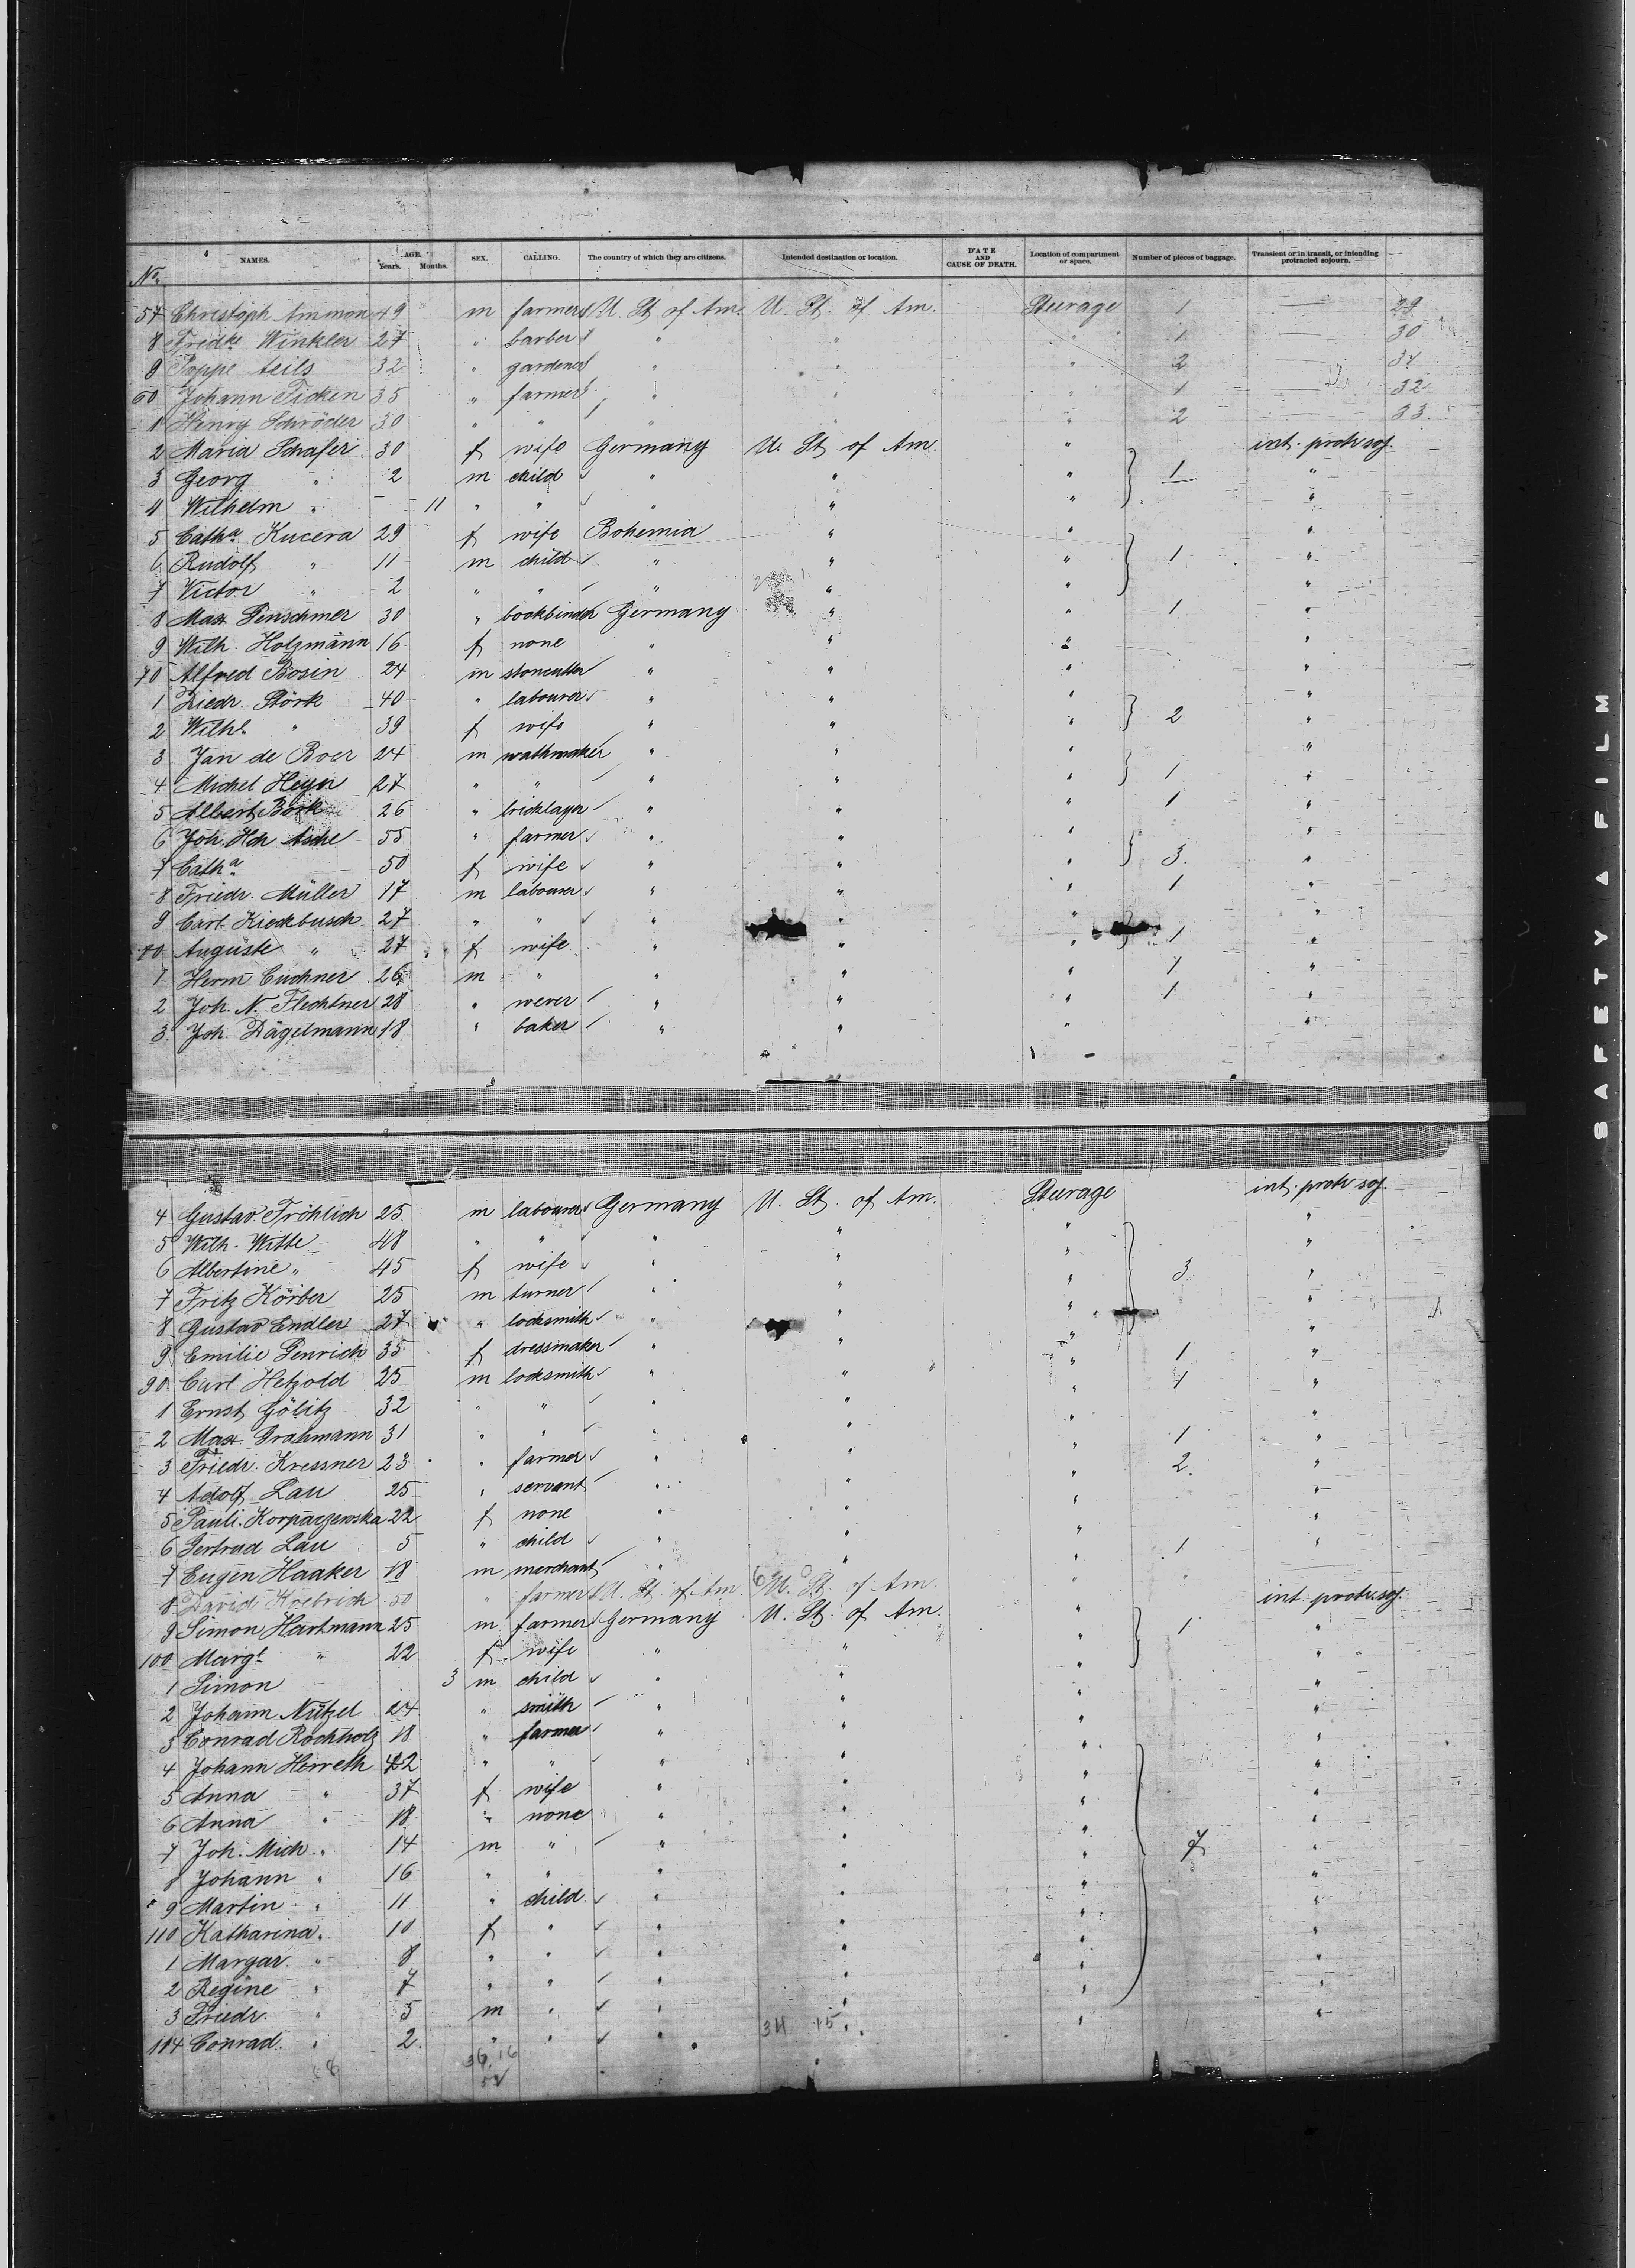 No. NAMES. AGE. Years. Months. SEX. CALLING. The country of which they are citizens. Intended destination or location. DATE AND CAUSE OF DEATH. Location of compartment or space. Number of pieces of baggage. Transient or in transit, or intending protracted sojourn.
57 Christoph Ammon 49 m farmer U. St of Am. U. St. of Am. Steerage 1 — 29
8 Fredk. Winkler 27 " barber " " " 1 — 30
9 Poppe 32 " gardener " " " 2 — 31
60 Johann Ficken 35 " farmer " " " 1 — 32
1 Henry Schröder 30 " " " " " 2 — 33
2 Maria Schafer 30 f wife Germany U. St of Am. " int. protr soj.
3 Georg " 2 m child " " " 1 "
4 Wilhelm " 11 " " " " " "
5 Catha Kucera 29 f wife Bohemia " " "
6 Rudolf " 11 m child " " " 1 "
7 Victor " 2 " " " " " "
8 Max 30 " bookbinder Germany " " 1 "
9 Wilh. Holzmann 16 f none " " " "
70 Alfred Bosin 24 m stonecutter " " " "
1 Diedr. Störk 40 " labourer " " " "
2 Wilh. " 39 f wife " " " 2 "
3 Jan de Boer 24 m wathmaker " " " "
4 Michel Heyn 27 " " " " " 1 "
5 Albert Bork 26 " bricklayer " " " 1 "
6 Joh. Hch Asche 55 " farmer " " " "
7 Catha 50 f wife " " " 3. "
8 Friedr. Müller 17 m labourer " " " 1 "
9 Carl Kieckbusch 27 " " " " " "
80 Auguste " 27 f wife " " " 1 "
1 Herm. Cuchner 26 m " " " " 1 "
2 Joh. N. Flechtner 28 " wever " " " 1 "
3 Joh. Dägelmann 18 " baker " " " "
4 Gustav Fröhlich 25 m labourer Germany U. St. of Am. Steerage int. protr soj.
5 Wilh. Witte 48 " " " " " "
6 Albertine " 45 f wife " " " 3 "
7 Fritz Körber 25 m turner " " " "
8 Gustav Endler 27 " locksmith " " " "
9 Emilie Genrich 35 f dressmaker " " " 1 "
90 Carl Hetzold 25 m locksmith " " " 1 "
1 Ernst Gölitz 32 " " " " " "
2 Max Grahmann 31 " " " " " 1 "
3 Friedr. Kressner 23 " farmer " " " 2. "
4 Adolf Lau 25 " servant " " " "
5 Pauli. Korpaczewska 22 f none " " " "
6 Gertrud Lau 5 " child " " " 1 "
7 Eugen Haaker 18 m merchant " " " "
8 David 50 " farmer U. St. of Am. U. St. of Am. " " —
9 Simon Hartmann 25 m farmer Germany U. St. of Am. " 1 int. protr. soj.
100 Margt " 22 f wife " " " "
1 Simon 3 m child " " " "
2 Johann Nützel 24 " smith " " " "
3 Conrad Rochholz 18 " farmer " " " "
4 Johann Herreth 42 " " " " " "
5 Anna " 37 f wife " " " "
6 Anna " 18 " none " " " "
7 Joh. Mich " 14 m " " " " 7 "
8 Johann " 16 " " " " " "
9 Martin " 11 " child " " " "
110 Katharina " 10 f " " " " "
1 Margar. " 8 " " " " " "
2 Regine " 7 " " " " " "
3 Friedr. " 5 m " " " " "
114 Conrad. " 2. " " " " " "
36.16
SAFETY A FILM